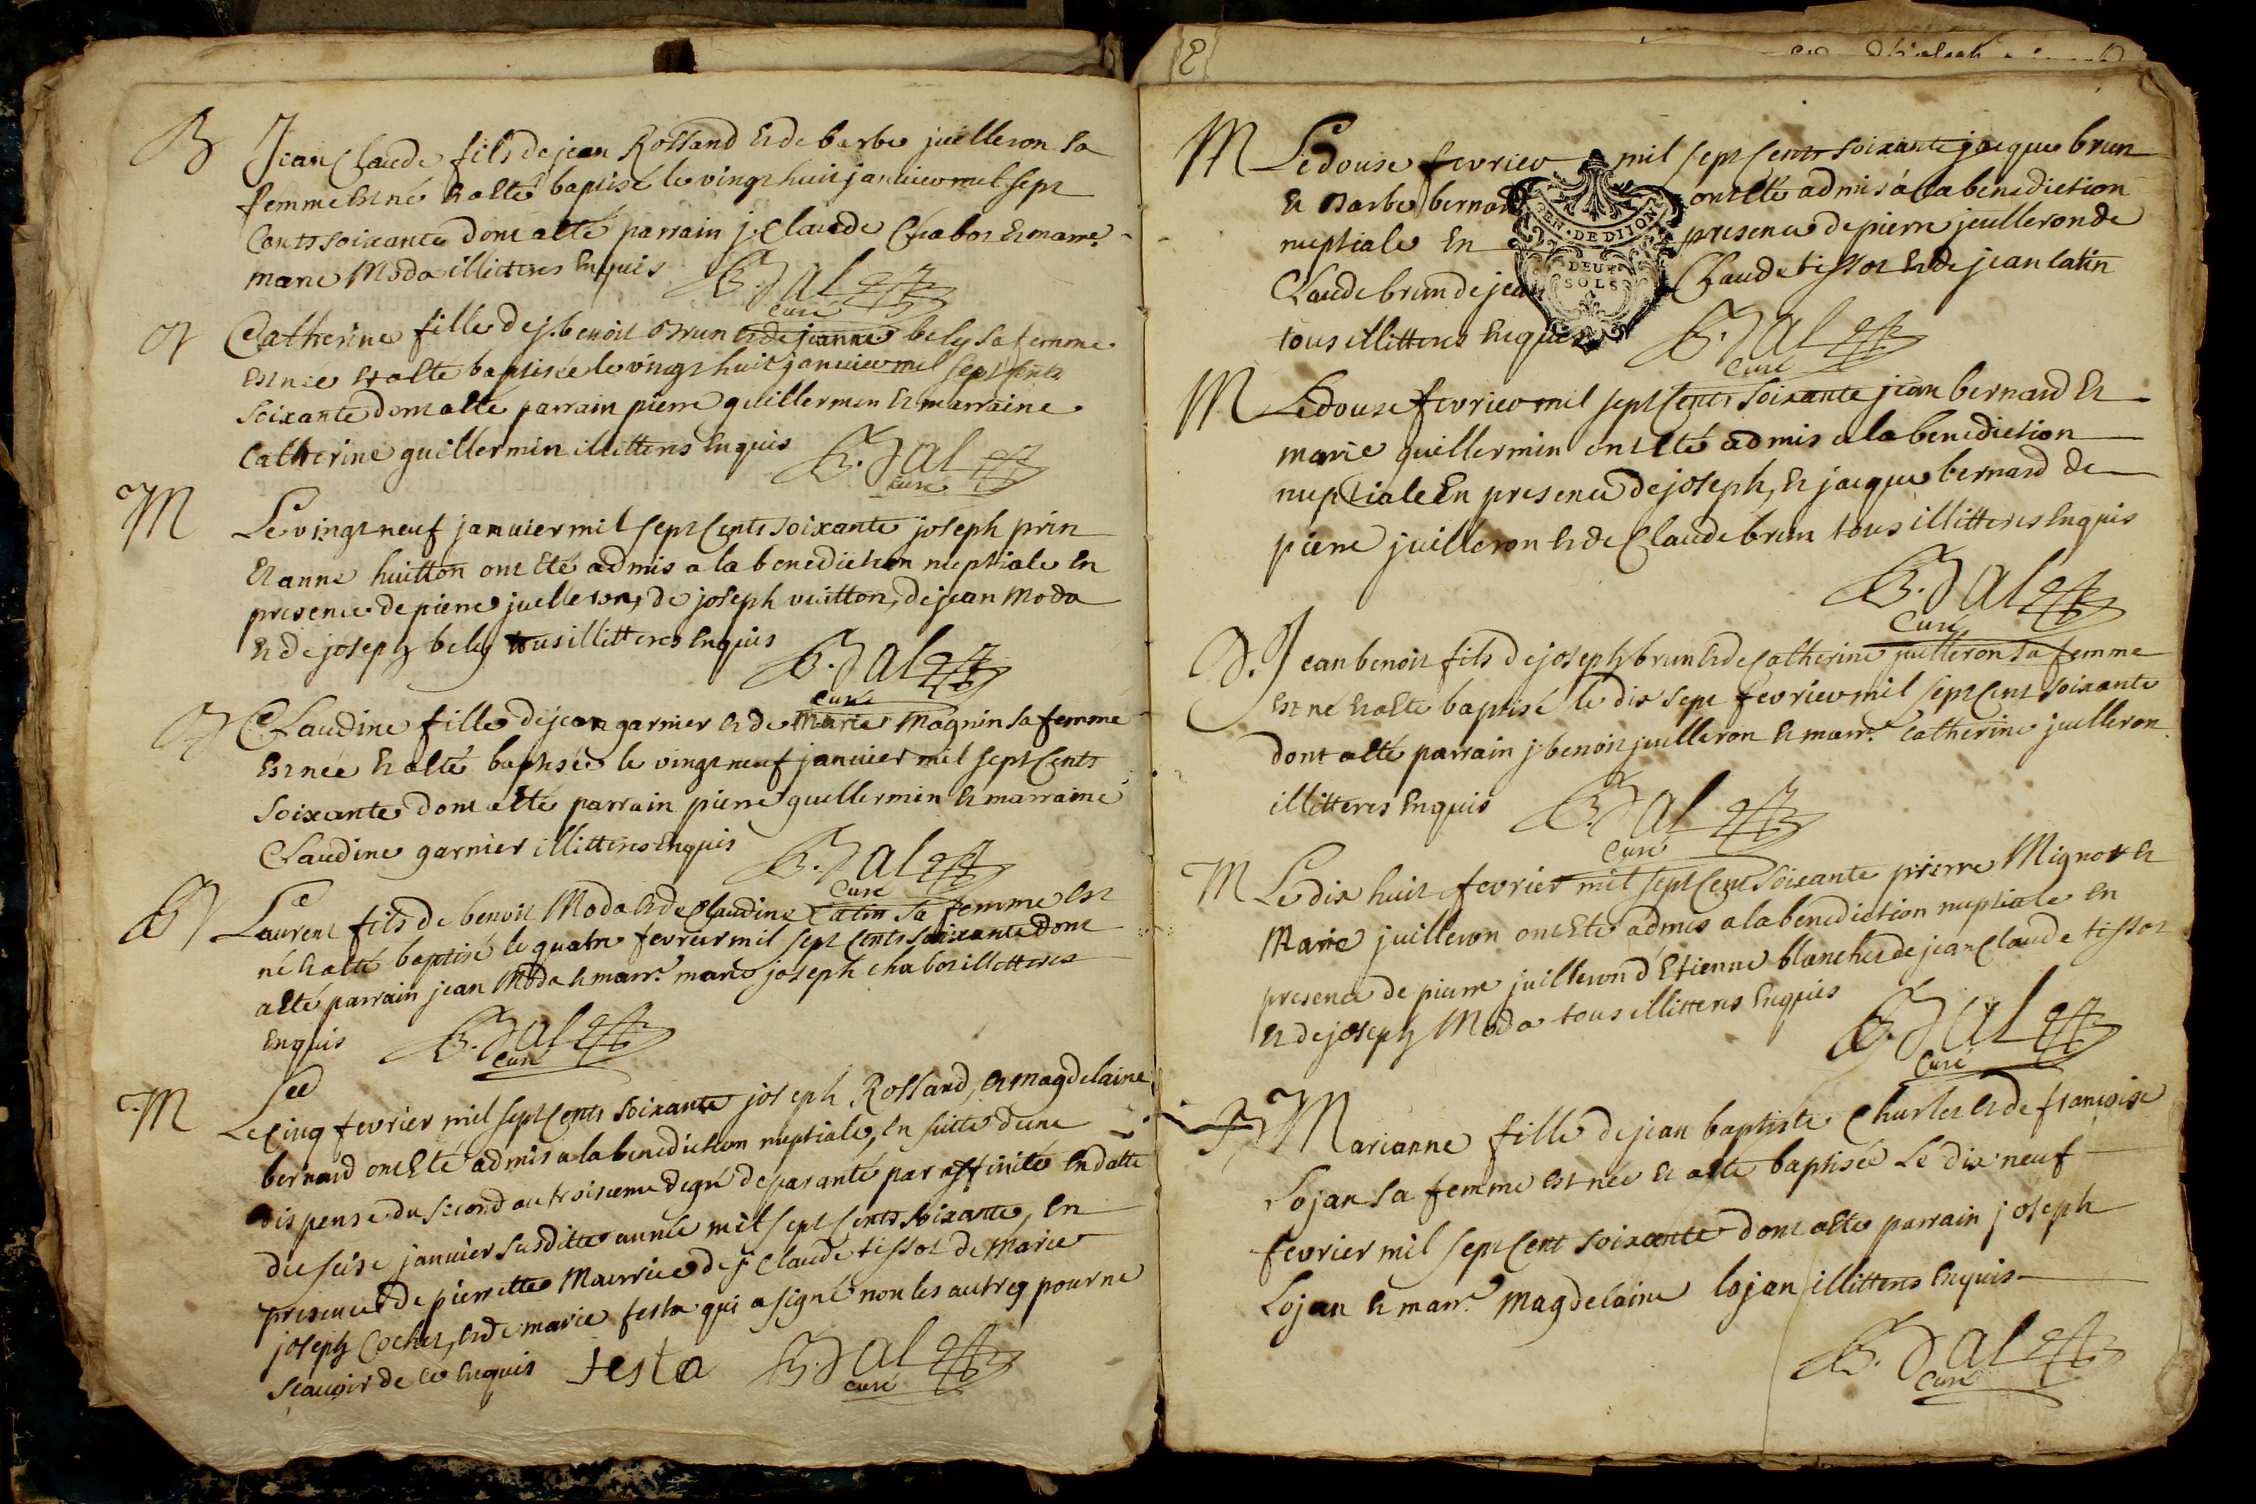 B Jean Claude fils de jean Rolland et de barbe juilleron sa
femme est né et a eté baptisé le vingt huit janvier mil sept
cents soixante dont a eté parrain j. Claude Chabot et marr.e
marie Moda illitteres enquis B. Jal
curé
Catherine fille de j. benoit Brun et de jeanne bely sa femme
est née et a eté baptisée le vingt huit janvier mil sept cents
soixante dont a eté parrain pierre guillermin et marraine
Catherine guillermin illitteres enquis B. Jal
curé
M Le vingt neuf janvier mil sept cents soixante joseph prin
et anne huitton ont eté admis a la benediction nuptiale en
presence de pierre juilleron, de joseph vuitton, de jean Moda
et de joseph bely tous illitteres enquis B. Jal
curé
Claudine fille de jean garnier et de Marie Magnin sa femme
est née et a eté baptisée le vingt neuf janvier mil sept cents
soixante dont a eté parrain pierre guillermin et marraine
Claudine garnier illitteres enquis B. Jal
curé
B Laurent fils de benoit Moda et de Claudine Catin sa femme est
né et a eté baptisé le quatre fevrier mil sept cents soixante dont
a eté parrain jean Moda et marr.e marie joseph chabot illitteres
enquis B. Jal
curé
M Le cinq fevrier mil sept cents soixante joseph Rolland, et magdelaine
bernard ont eté admis a la benediction nuptiale, en suitte d'une
dispense du second au troisieme degré de paranté par affinité en datte
du seise janvier susditte année mil sept cents soixante, en
presence de pierrette Maurrice de j. Claude tissot de Marie
joseph Cochet, et de marie festa qui a signé non les autres pour ne
scavoir de ce enquis testa B. Jal
curé
M Le douse fevrier mil sept cents soixante jacque brun
et Barbe bernard ont eté admis á la benediction
nuptiale en presence de pierre jeulleron de
Claude brun de jean Claude tissot et de jean latin
tous illitteres enquis B. Jal
curé
GEN. DE DIJON
DEUX
SOLS
M Le douse fevrier mil sept cents soixante jean bernard et
marie guillermin ont eté admis a la benediction
nuptiale en presence de joseph, et jacque bernard de
pierre juilleron et de Claude brun tous illitteres enquis
B. Jal
curé
Jean benoit fils de joseph brun et de Catherine juilleron sa femme
est né et a eté baptisé le dix sept fevrier mil sept cent soixante
dont a eté parrain j. benoit juilleron et marr.e Catherine juilleron
illitteres enquis B. Jal
curé
M Le dix huit fevrier mil sept cent soixante pierre Mignot et
Marie juilleron ont eté admis a la benediction nuptiale en
presence de pierre juilleron d'Etienne blanchet de jean Claude tissot
et de joseph Moda tous illitteres enquis B. Jal
curé
Marianne fille de jean baptiste Churlet et de françoise
Lojan sa femme est née et a eté baptisée Le dix neuf
fevrier mil sept cent soixante dont a eté parrain joseph
Lojan et marr.e Magdelaine lojan illitteres enquis
B. Jal
curé